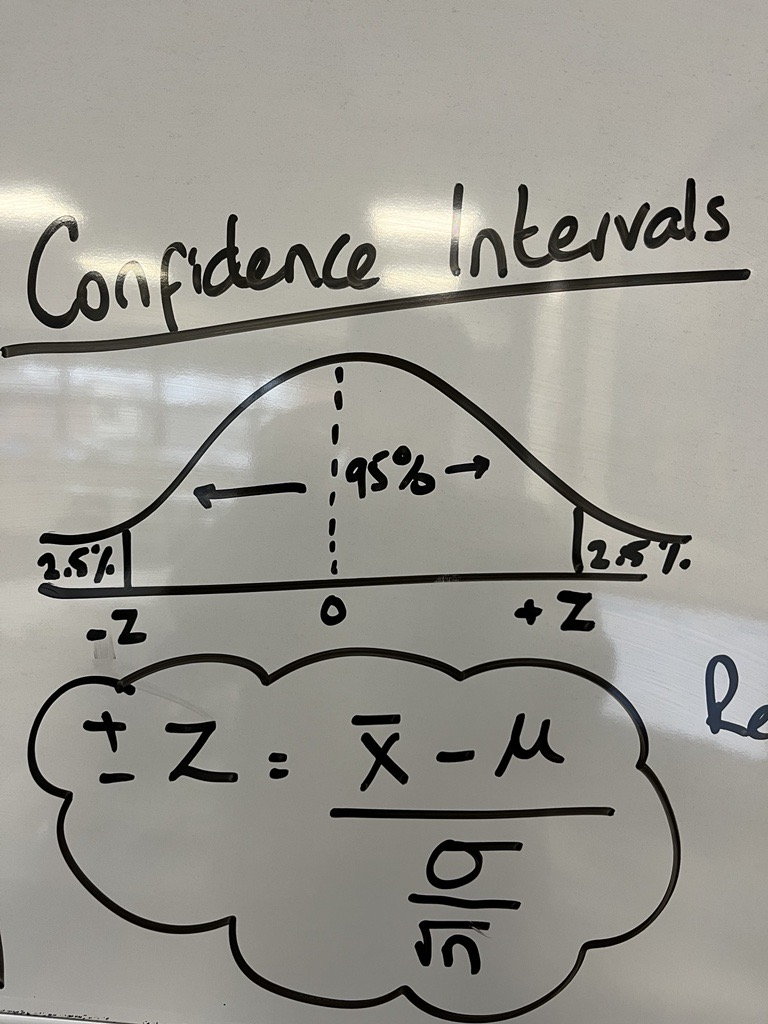 Confidence Intervals
← 95% →
2.5% 2.5%
-Z 0 +Z
± Z = x̄ - μ
σ
√n